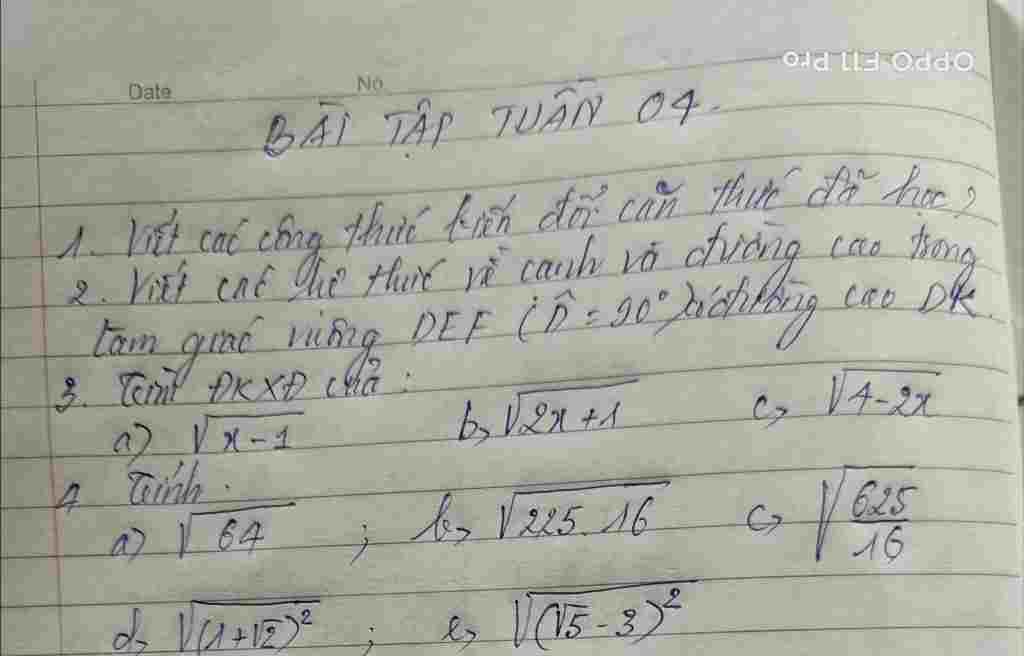 OPPO F11 Pro
Date No
BÀI TẬP TUẦN 04.
1. Viết các công thức biến đổi căn thức đã học?
2. Viết các hệ thức về cạnh và đường cao trong
tam giác vuông DEF (D̂ = 90°) có đường cao DK.
3. Tìm ĐKXĐ của :
a) √(x-1) b, √(2x+1) c, √(4-2x)
4 Tính.
a) √64 ; b, √(225.16) c, √(625/16)
d, √((1+√2)²) ; e, √((√5-3)²)